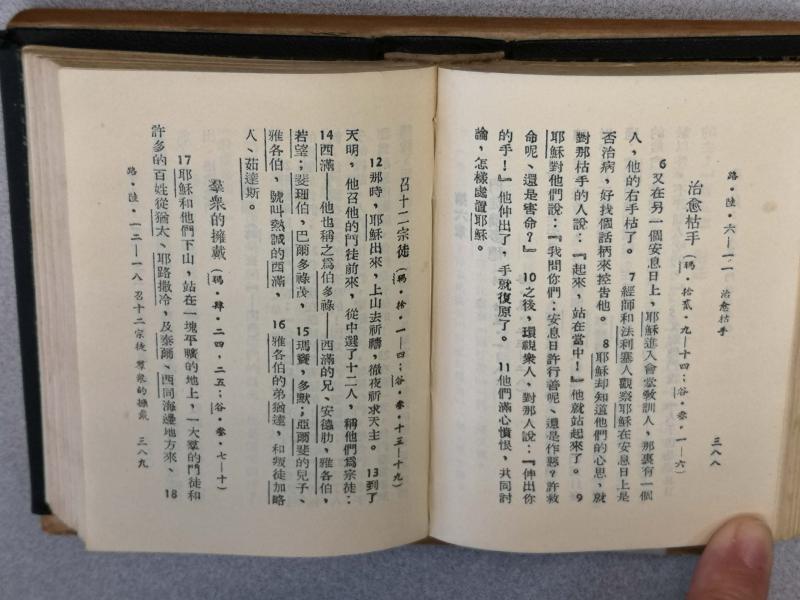 路・陸・六─一一　治愈枯手　三八八
治愈枯手 (瑪・拾貳・九─十四；谷・叁・一─六)
6 又在另一個安息日上，耶穌進入會堂教訓人，那裏有一個
人，他的右手枯了。7 經師和法利塞人觀察耶穌在安息日上是
否治病，好找個話柄來控告他。8 耶穌却知道他們的心思，就
對那枯手的人說：『起來，站在當中！』他就站起來了。9
耶穌對他們說：『我問你們：安息日許行善呢、還是作惡？許救
命呢、還是害命？』10 之後，環視衆人，對那人說：『伸出你
的手！』他伸出了，手就復原了。11 他們滿心憤恨，共同討
論，怎樣處置耶穌。
召十二宗徒 (瑪・拾・一─四；谷・叁・十五─十九)
12 那時，耶穌出來，上山去祈禱，徹夜祈求天主。13 到了
天明，他召他的門徒前來，從中選了十二人，稱他們爲宗徒：
14 西滿──他也稱之爲伯多祿──西滿的兄、安德肋，雅各伯，
若望；斐理伯，巴爾多祿茂，15 瑪竇，多默；亞爾斐的兒子、
雅各伯，號叫熱誠的西滿，16 雅各伯的弟猶達，和叛徒加略
人、茹達斯。
羣衆的擁戴 (瑪・肆・二四，二五；谷・叁・七─十)
17 耶穌和他們下山，站在一塊平曠的地上，一大羣的門徒和
許多的百姓從猶太、耶路撒冷，及泰爾、西同海邊地方來、18
路・陸・一二─一八 召十二宗徒 羣衆的擁戴　三八九